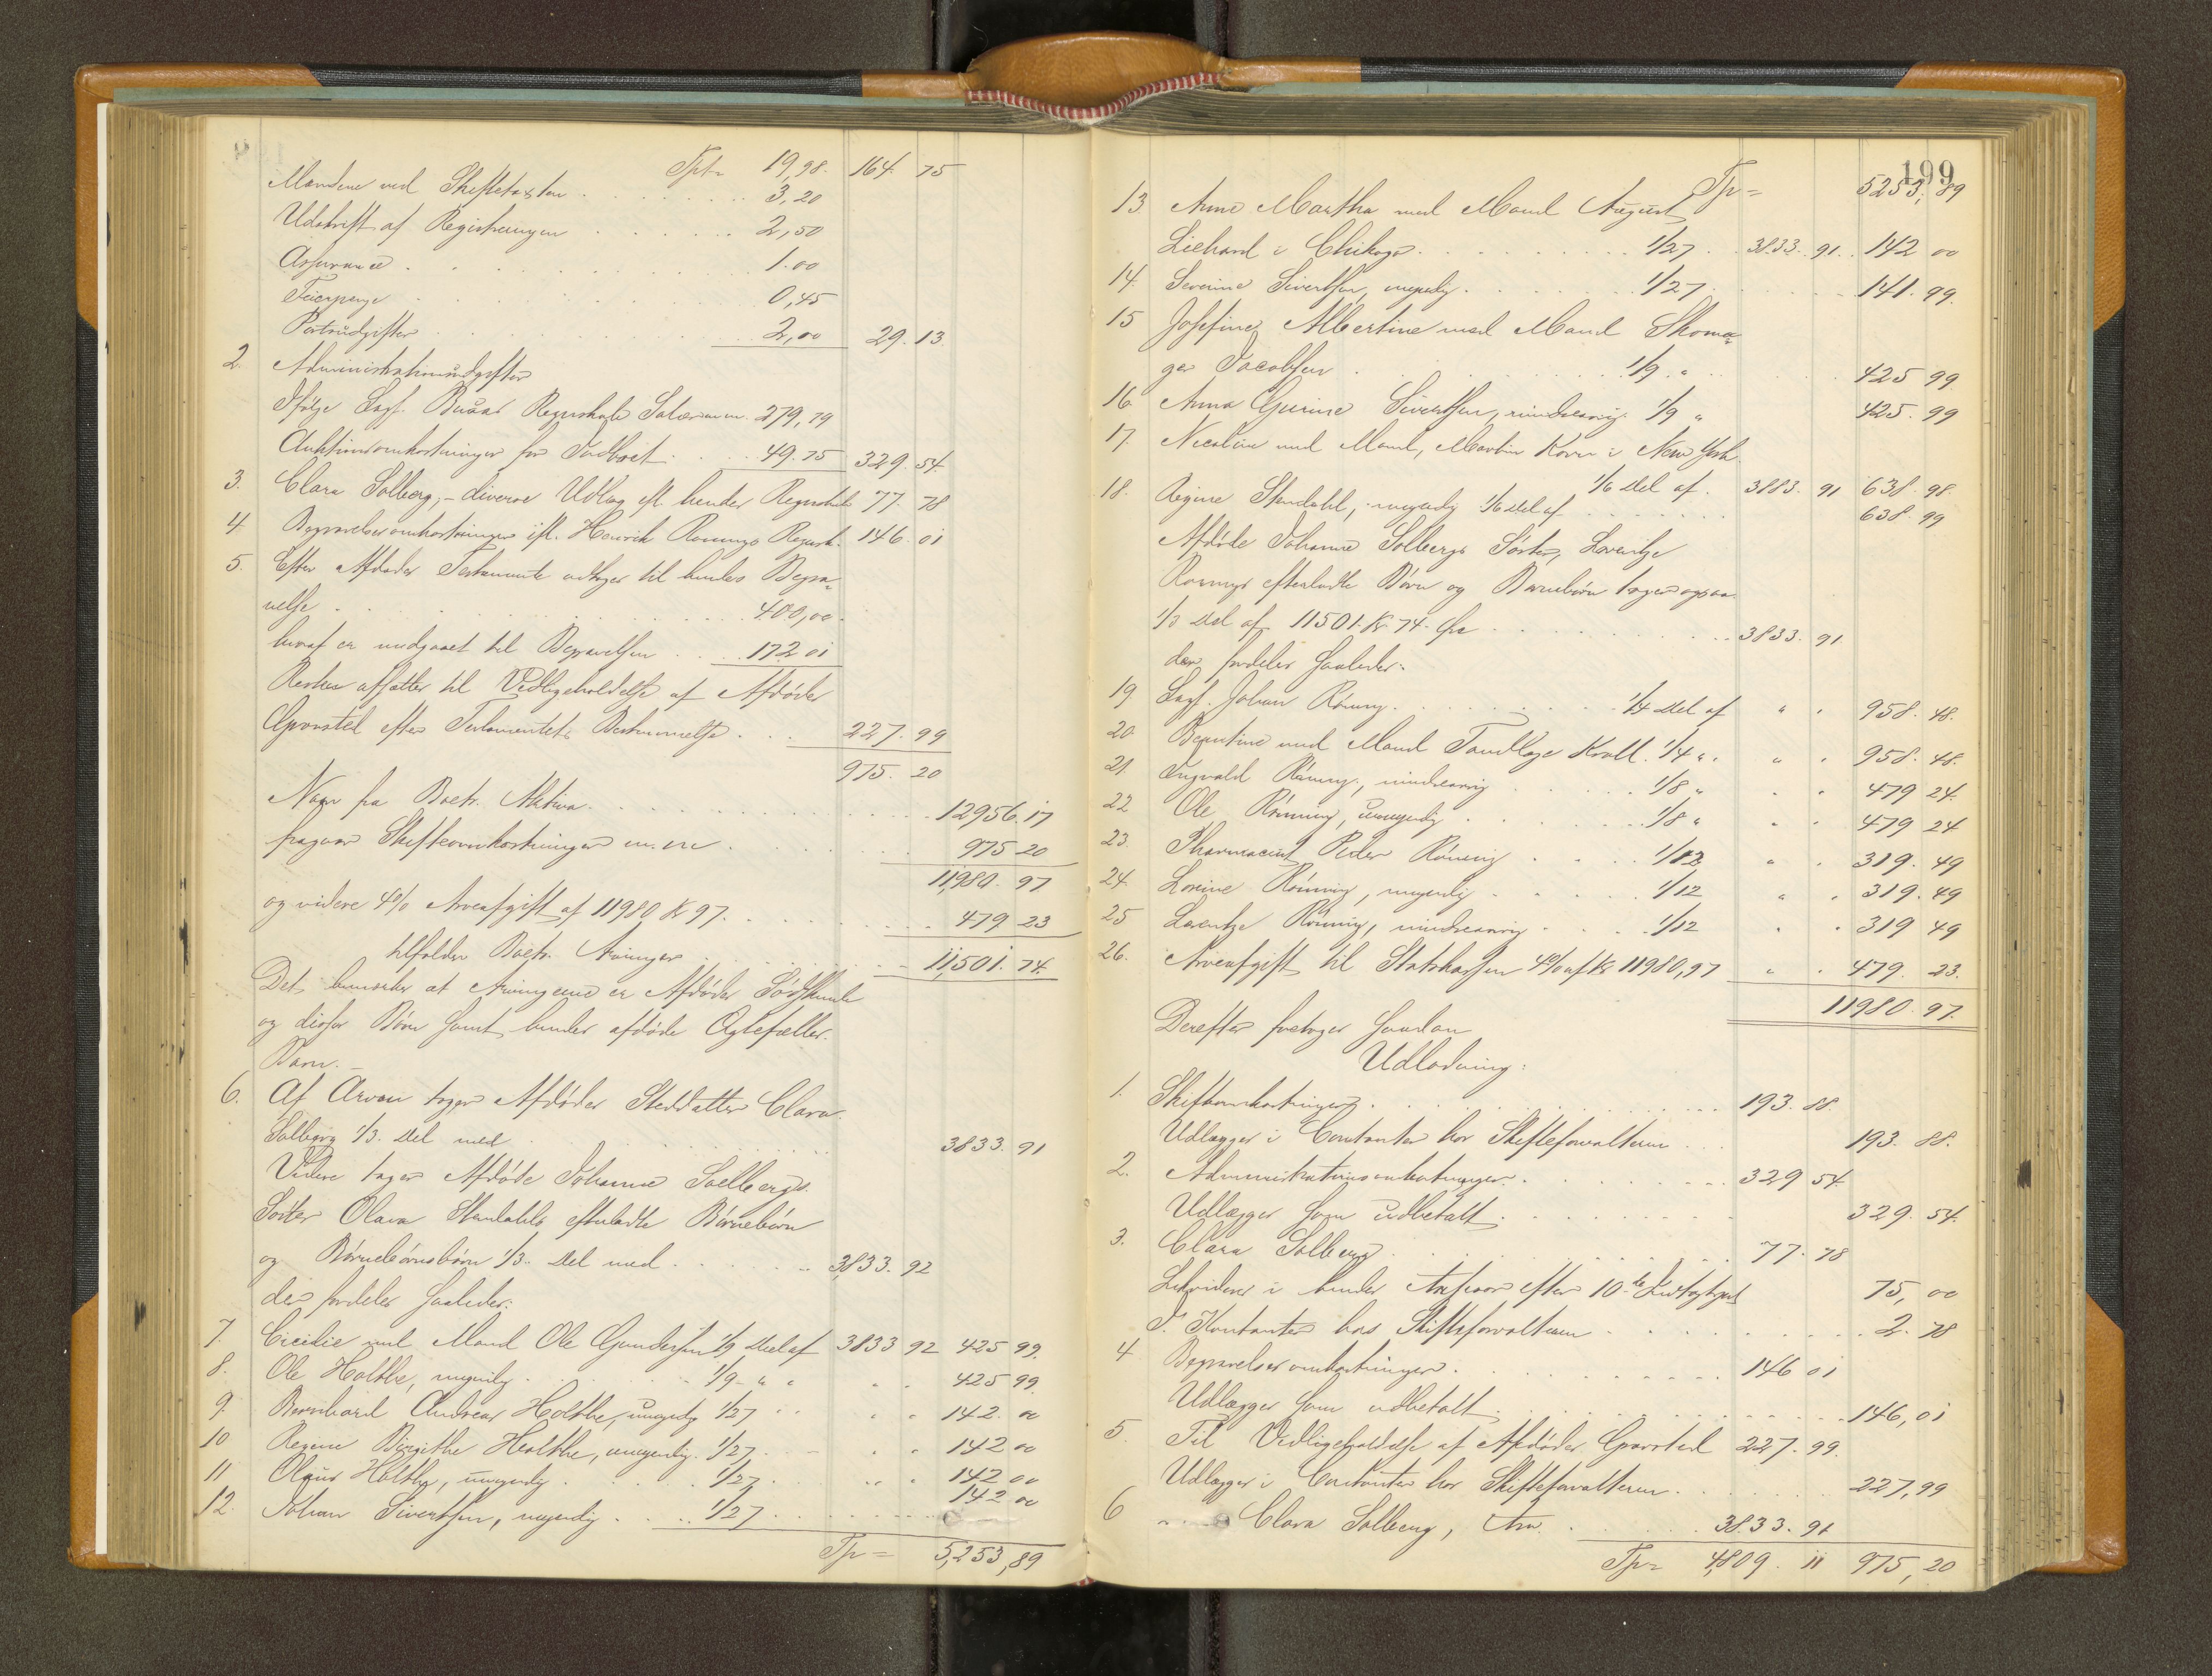 Tpt= 19,98. 164. 75
Mændene ved Skiftetaxten . . . 3,20
Udskrift af Registreringen . . . 2,50
Assurance . . . 1.00
Feierpenge . . . 0,45
Portoudgifter . . . 2,00 29.13.
2. Administrationsudgifter
Ifølge Sagf. Buaas Regnskab Salær m.m. 279,79
Auktionsomkostninger for Indboet . . . 49.75 329.54.
3. Clara Solberg, - diverse Udlæg efl. hendes Regnskab 77.78
4. Begravelsesomkostninger ifl. Henrik Rønnings Regnsk. 146.01
5. Efter Afdødes Testamente udtages til hendes Begra-
velse . . . 400,00.
hvoraf er medgaaet til Begravelsen . . . 172 01
Resten afsættes til Vedligeholdelse af Afdødes
Gravsted efter Testamentets Bestemmelse . . . 227.99
975.20
Naar fra Boets Aktiva . . . 12956.17
fragaar Skifteomkostninger m.m. . . . 975 20
11,980.97
og videre 4% Arveafgift af 11980 Kr 97. . . . 479 23
tilfalder Boets Arvinger . . . 11,501.74.
Det bemærkes at Arvingerne er Afdødes Södskende
og disses Börn samt hendes afdøde Ægtefælles
Barn. -
6. Af Arven tager Afdødes Steddatter Clara
Solberg 1/3. Del med . . . 3833.91
Videre tager Afdøde Johanne Solbergs
Söster Olava Stendahls efterladte Börnebörn
og Börnebörnsbörn 1/3. Del med . . . 3,833.92
der fordeles saaledes:
7. Cicilie med Mand Ole Gundersen 1/9 Deel af 3833 92 425 99.
8. Ole Holthe, myndig . . . 1/9 - " " 425 99.
9. Bernhard Andreas Holthe, umyndig 1/27 " " 142. 00
10 Regine Birgithe Holthe, umyndig. 1/27 . . . 142 00
11 Olaus Holthe, umyndig . . . 1/27 . . . 142 00
12. Johan Sivertsen, myndig . . . 1/27 . . . 142 00
Tpr = 5,253,89
199
Tpr = 5253,89
13. Anne Martha med Mand August
Liehard i Chikago . . . 1/27 . . 3833. 91. . 142 00
14. Severine Sivertsen, myndig . . . 1/27 . . . 141.99.
15 Josefine Albertine med Mand Skoma-
ger Jacobsen . . . 1/9 . " . . . 425 99
16 Anna Gurine Sivertsen, mindreaarig. 1/9 " 425.99
17. Nicoline med Mand, Martin Koren i New York
1/6 Del af. 3883. 91 638.98.
18. Regine Stendahl, myndig 1/6 Del af . . . 638.99
Afdöde Johanne Solbergs Söster, Lorentze
Rønnings efterladte Börn og Barnebörn tager ogsaa
1/3 Del af 11501. Kr. 74. Øre . . . 3833. 91
der fordeles saaledes:
19. Sagf. Johan Rönning . . . 1/4 Del af " . 958.48.
20 Bergitine med Mand Tandlæge Krall. 1/4 " . " . 958.48.
21 Ingvald Rönning, mindreaarig . . . 1/8 " . " 479 24.
22 Ole Rönning, umyndig . . . 1/8 " " . 479 24
23. Pharmaceut Peder Rönning . . . 1/12 " . 319.49
24. Lovine Rönning, myndig . . . 1/12 " . 319.49
25 Lorentze Rönning, mindreaarig . . . 1/12 . . 319 49
26. Arveafgift til Statskassen 4% af Kr 11980,97 " . 479. 23.
11980.97.
Derefter foretages saadan
Udlodning:
1. Skifteomkostninger . . . 193.88.
Udlægges i Contanter hos Skifteforvalteren . . . 193. 88.
2. Administrationsomkostninger . . . 329 54.
Udlægges som udbetalt . . . 329. 54.
3. Clara Solberg . . . 77.78
Likvideres i hendes Ansvar efter 10. de Indtægtspost 75, 00
I Kontanter hos Skifteforvalteren . . . 2. 78
4 Begravelsesomkostninger . . . 146 01
Udlægges som udbetalt . . . 146,01
5. Til Vedligeholdelse af Afdødes Gravsted 227.99.
Udlægges i Contanter hos Skifteforvalteren . . . 227,99
6 Clara Solberg, Arv. . . . 3833. 91
Tpr= 4,809. 11 975,20